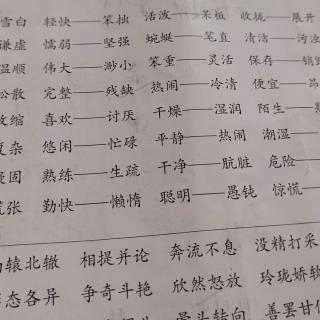 雪白 轻快——笨拙 活泼——呆板 收拢——展开
谦虚 懦弱——坚强 蜿蜒——笔直 清洁——污浊
温顺 伟大——渺小 笨重——灵活 保存——
松散 完整——残缺 热闹——冷清 便宜——昂
收缩 喜欢——讨厌 干燥——湿润 陌生——
复杂 悠闲——忙碌 平静——热闹 潮湿——
熟练——生疏 干净——肮脏 危险——
慌张 勤快——懒惰 聪明——愚钝 惊慌——
南辕北辙 相提并论 奔流不息 没精打采
态各异 争奇斗艳 欣然怒放 玲珑娇软
晕头转向 善罢甘休